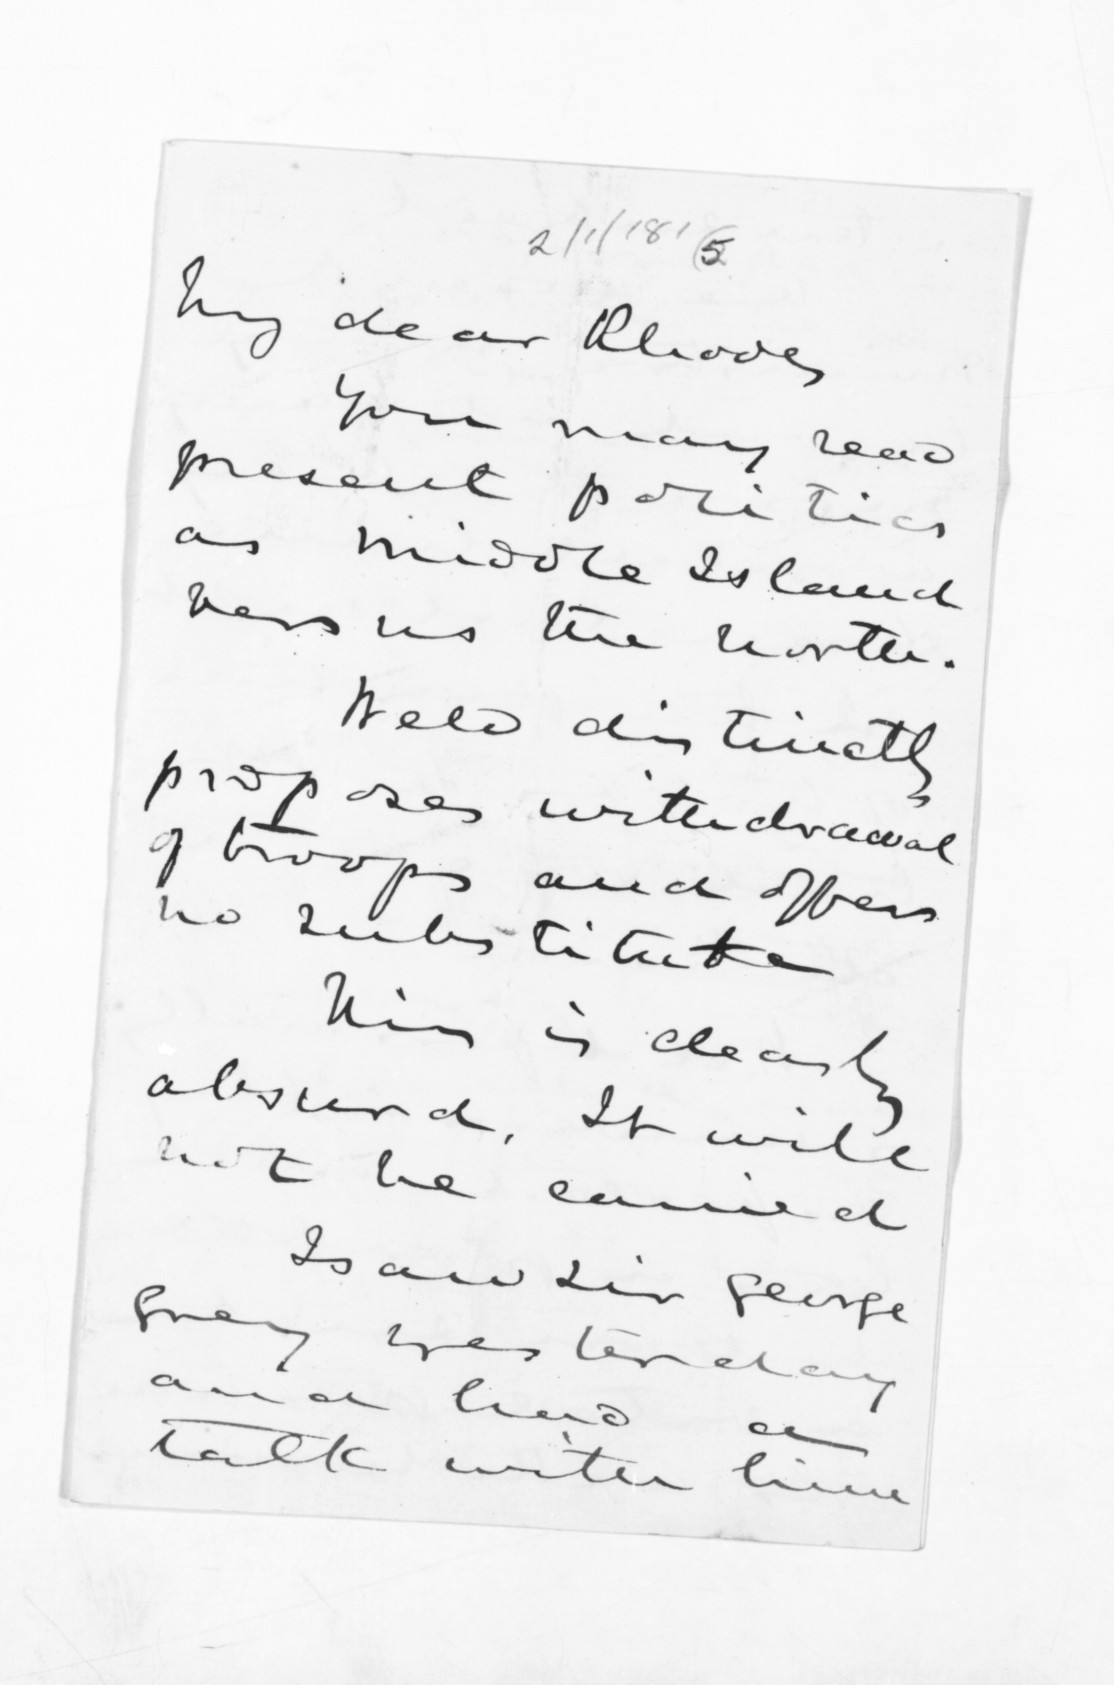 2/1/1865
My dear Rhodes
You may read
present politics
as Middle Island
versus the North.
Weld distinctly
proposes withdrawal
of troops and offers
no substitute
This is clearly
absurd, It will
not be carried
I saw Sir George
Grey yesterday
and had a
talk with him